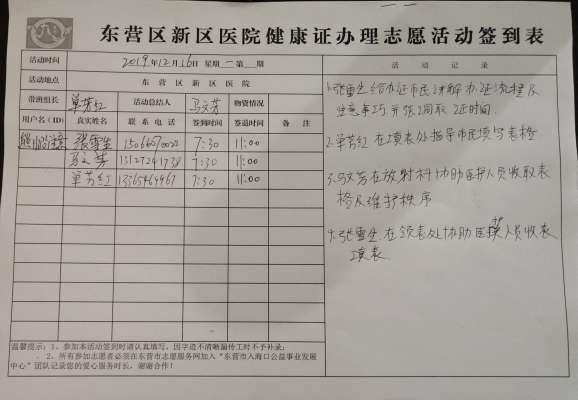 东营区新区医院健康证办理志愿活动签到表
活动时间 2019年12月16日 星期二第__期 活动记录
活动地点 东营区新区医院
带班组长 单芳红 活动总结人 马文芳 物资情况
用户名(ID) 真实姓名 联系电话 签到时间 签退时间 备注
张雪生 7:30 11:00
马文芳 7:30 11:00
单芳红 7:30 11:00
1.张雪生给办证市民讲解办证流程及
注意事项,并张门领取证时间.
2.单芳红在填表处指导市民填写表格
3.马文芳在放射科协助医护人员收取表
格及维护秩序
4.张雪生在领表处协助医护人员收表
填表.
温馨提示:1、参加本活动签到时请认真填写,因字迹不清晰漏传工时不予补录;
2、所有参加志愿者必须在东营市志愿服务网加入“东营市入海口公益事业发展
中心”团队记录您的爱心服务时长,谢谢合作!